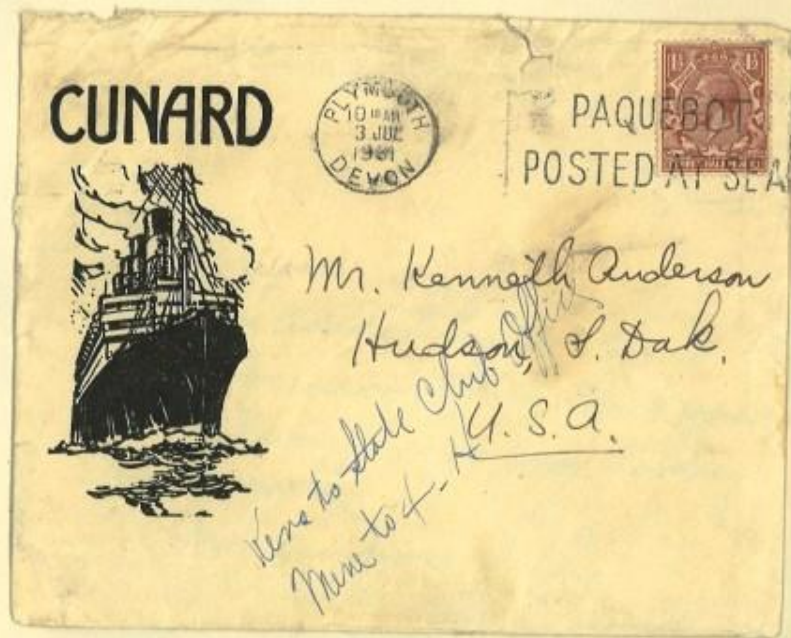 CUNARD
PLYMOUTH
10 AM
3 JUL
1931
DEVON
PAQUEBOT
POSTED AT SEA
1½ 1½
Mr. Kenneth Anderson
Hudson, S. Dak.
U. S. A.
Kens to State Club Office
Mine to 4-H